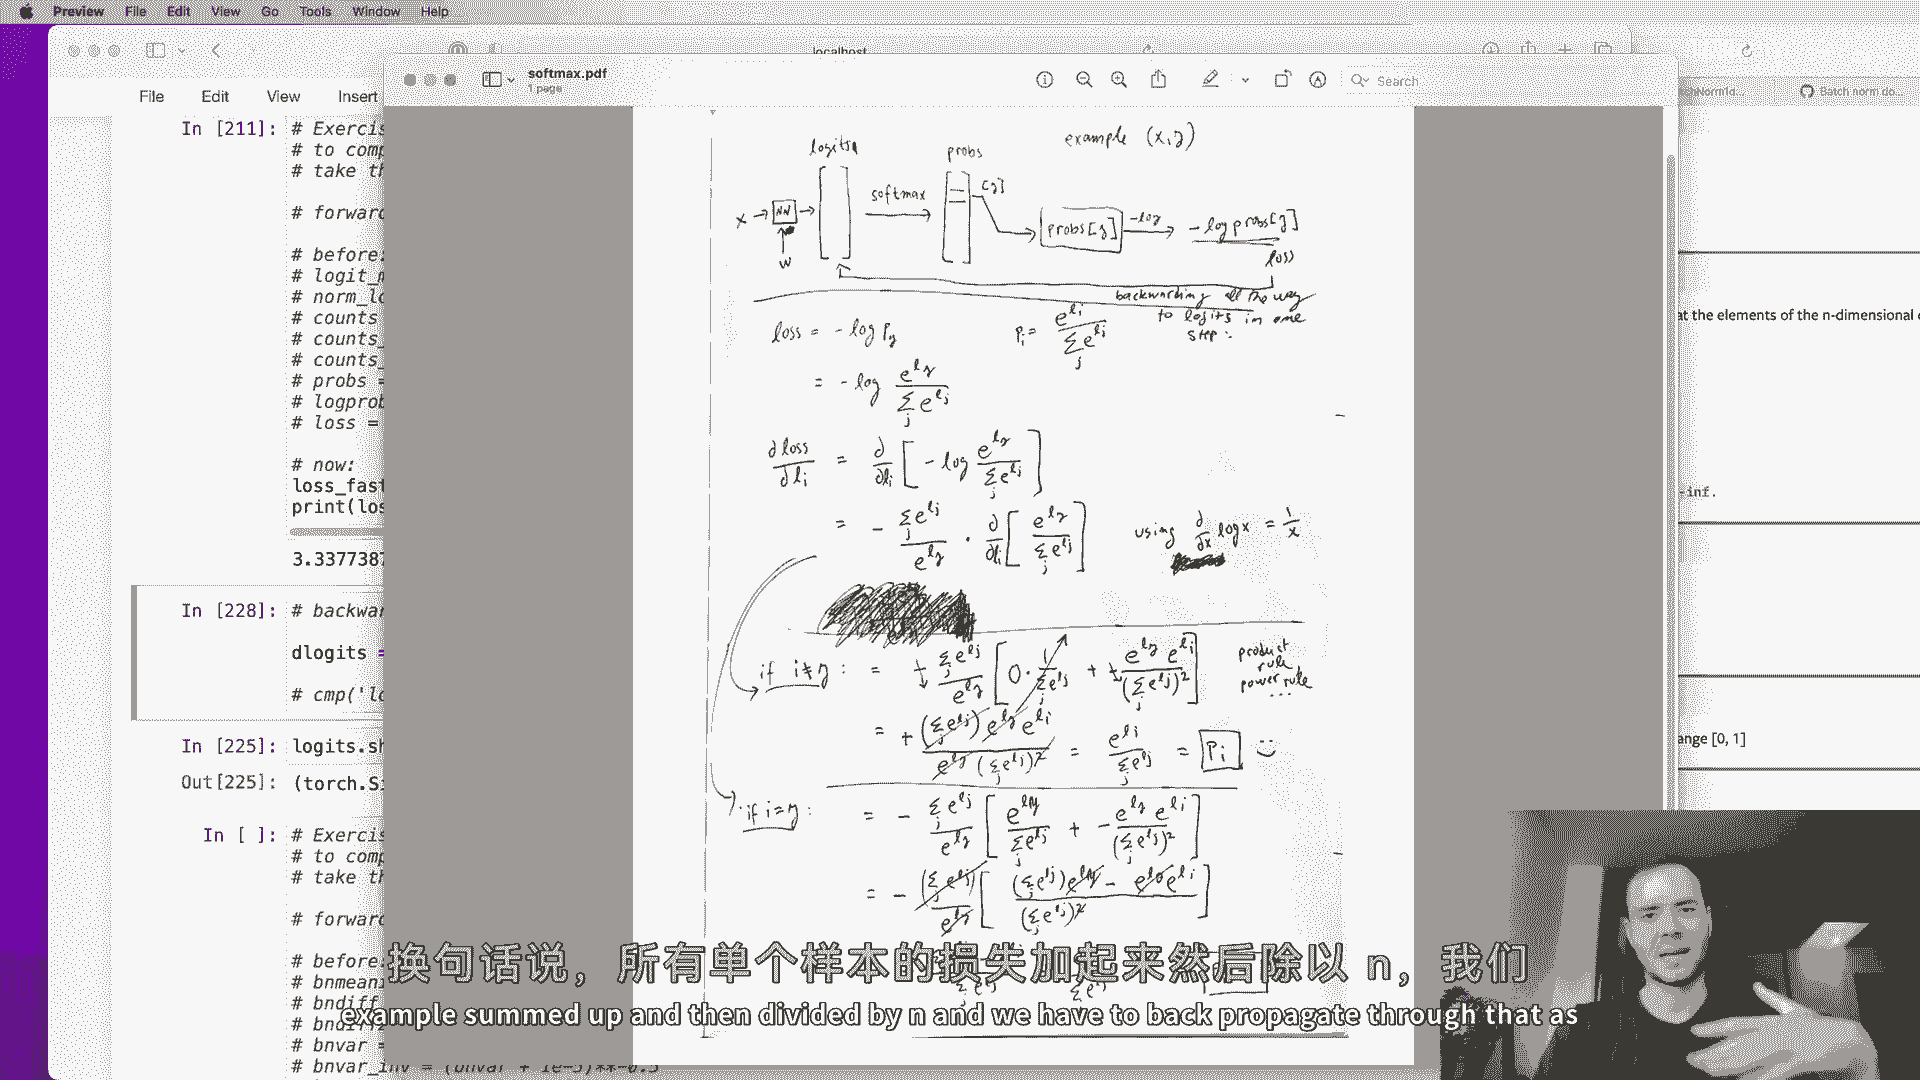 Preview File Edit View Go Tools Window Help
localhost
softmax.pdf
1 page
Search
File Edit View Insert
Batch norm do...
In [211]: # Exercis
# to comp
# take th
# forward
# before:
# logit_m
# norm_lo
# counts
# counts_
# counts_
# probs =
# logprob
# loss =
# now:
loss_fast
print(los
3.3377387
In [228]: # backwar
dlogits =
# cmp('lo
In [225]: logits.sh
Out[225]: (torch.Si
In [ ]: # Exercis
# to comp
# take th
# forward
# before:
# bnmeani
# bndiff
# bndiff
# bnvar =
# bnvar_inv = (bnvar + 1e-5)**-0.5
example (x,y)
logits
probs
x → NN →
softmax
[y]
probs[y]
-log
- log probs[y]
w
loss
backwarding all the way
to logits in one
step:
loss = - log Py
Pi = e^li / Σj e^lj
= - log e^ly / Σj e^lj
∂loss/∂li = ∂/∂li [ - log e^ly / Σj e^lj ]
= - Σj e^lj / e^ly · ∂/∂li [ e^ly / Σj e^lj ]
using ∂/∂x log x = 1/x
if i≠y : = + Σj e^lj / e^ly [ 0 · 1 / Σj e^lj + + e^ly e^li / (Σj e^lj)² ]
product
rule,
power rule
...
= + (Σj e^lj) e^ly e^li / e^ly (Σj e^lj)² = e^li / Σj e^lj = Pi
if i=y : = - Σj e^lj / e^ly [ e^ly / Σj e^lj + - e^ly e^li / (Σj e^lj)² ]
= - (Σj e^lj) / e^ly [ (Σj e^lj) e^ly - e^ly e^li / (Σj e^lj)² ]
at the elements of the n-dimensional
-inf.
ange [0, 1]
换句话说，所有单个样本的损失加起来然后除以 n，我们
example summed up and then divided by n and we have to back propagate through that as